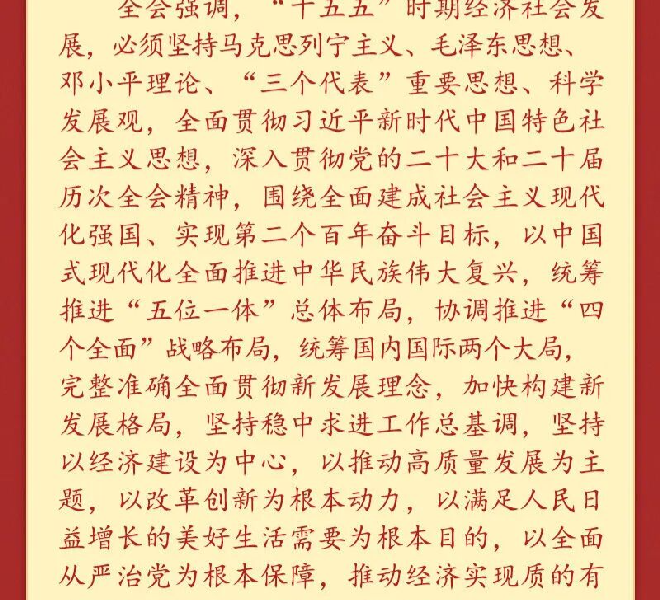 全会强调，“十五五”时期经济社会发
展，必须坚持马克思列宁主义、毛泽东思想、
邓小平理论、“三个代表”重要思想、科学
发展观，全面贯彻习近平新时代中国特色社
会主义思想，深入贯彻党的二十大和二十届
历次全会精神，围绕全面建成社会主义现代
化强国、实现第二个百年奋斗目标，以中国
式现代化全面推进中华民族伟大复兴，统筹
推进“五位一体”总体布局，协调推进“四
个全面”战略布局，统筹国内国际两个大局，
完整准确全面贯彻新发展理念，加快构建新
发展格局，坚持稳中求进工作总基调，坚持
以经济建设为中心，以推动高质量发展为主
题，以改革创新为根本动力，以满足人民日
益增长的美好生活需要为根本目的，以全面
从严治党为根本保障，推动经济实现质的有